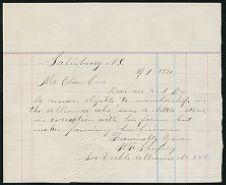 Salisbury N.C
9/1 1890
Mr Elias Carr
Dear sir and Bro
Is a man eligible to membership in
the alliance who runs a little store
in connection with his farm but
makes farming his business
Fraternally Yours
Sec Alliance No